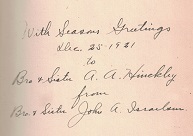 With Seasons Greetings
Dec. 25 1921
to
Bro & Sister A. A. Hinckley
from
Bro. & Sister John A. Israelsen.